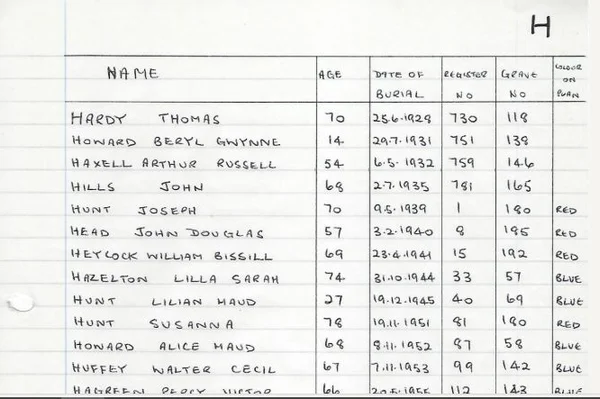 H
NAME AGE DATE OF BURIAL REGISTER NO GRAVE NO COLOUR ON PLAN
HARDY THOMAS 70 25.6.1929 730 118
HOWARD BERYL GWYNNE 14 29.7.1931 751 138
HAXELL ARTHUR RUSSELL 54 6.5.1932 759 146
HILLS JOHN 68 2.7.1935 781 165
HUNT JOSEPH 70 9.5.1939 1 180 RED
HEAD JOHN DOUGLAS 57 3.2.1940 8 185 RED
HEYCOCK WILLIAM BISSILL 69 23.4.1941 15 192 RED
HAZELTON LILLA SARAH 74 31.10.1944 33 57 BLUE
HUNT LILIAN MAUD 27 19.12.1945 40 69 BLUE
HUNT SUSANNA 78 19.11.1951 81 180 RED
HOWARD ALICE MAUD 68 8.11.1952 87 58 BLUE
HUFFEY WALTER CECIL 67 7.11.1953 99 142 BLUE
HAGREEN PERCY VICTOR 66 112 143 BLUE